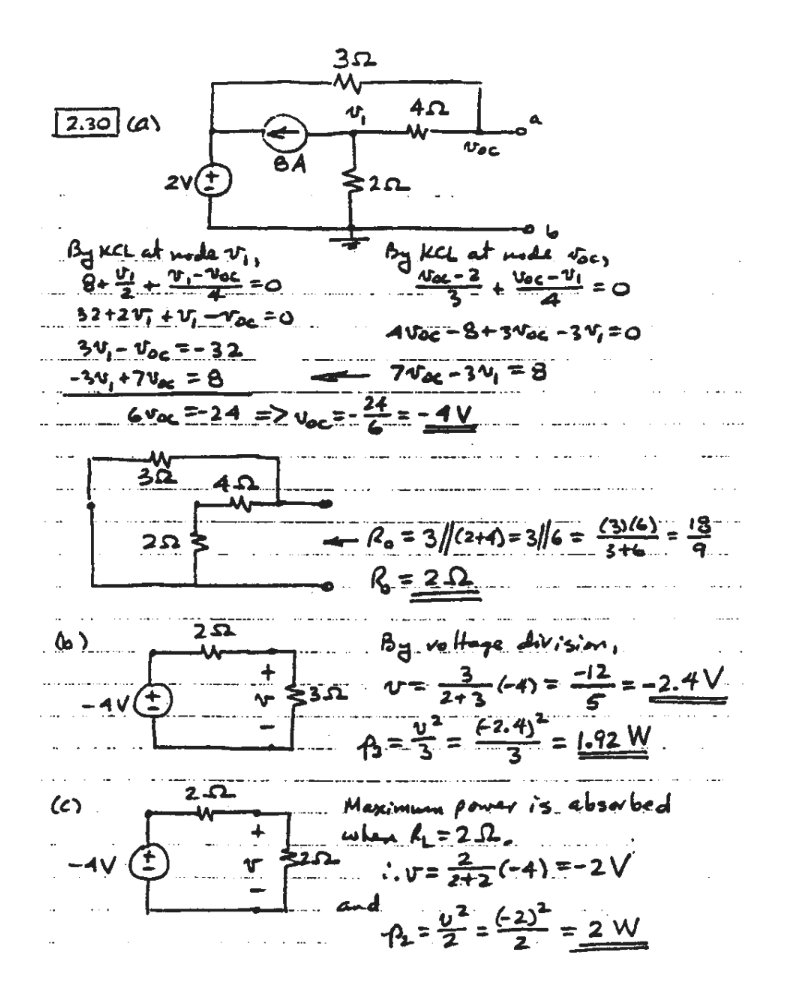 3Ω
2.30 (a)
v₁ 4Ω a
v_oc
8A
2V + − 2Ω
b
By KCL at node v₁,
8 + v₁/2 + (v₁ − v_oc)/4 = 0
32 + 2v₁ + v₁ − v_oc = 0
3v₁ − v_oc = −32
−3v₁ + 7v_oc = 8
By KCL at node v_oc,
(v_oc − 2)/3 + (v_oc − v₁)/4 = 0
4v_oc − 8 + 3v_oc − 3v₁ = 0
← 7v_oc − 3v₁ = 8
6v_oc = −24 => v_oc = −24/6 = −4V
3Ω
4Ω
2Ω
← R₀ = 3//(2+4) = 3//6 = (3)(6)/(3+6) = 18/9
R₀ = 2Ω
(b)
2Ω
−4V + − + v − 3Ω
By voltage division,
v = 3/(2+3) (−4) = −12/5 = −2.4V
p₃ = v²/3 = (−2.4)²/3 = 1.92 W
(c)
2Ω
−4V + − + v − 2Ω
Maximum power is absorbed
when R_L = 2Ω.
∴ v = 2/(2+2) (−4) = −2V
and
p₂ = v²/2 = (−2)²/2 = 2 W